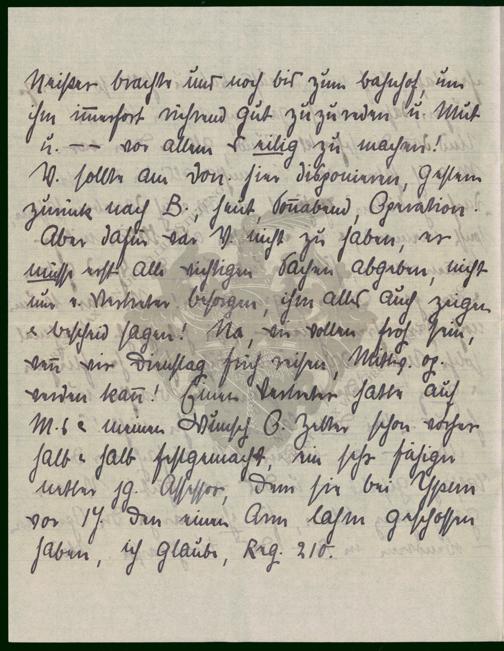 Neißer brachte uns noch bis zum bahnhof, um
ihm immerfort rührend gut zuzureden u. Mut
u. –– vor allem es eilig zu machen!
V. sollte am Don. hier disponieren, gestern
zurück nach B., heut, Sonnabend, Operation.
Aber dafür war V. nicht zu haben, er
müsse erst alle wichtigen Sachen abgeben, nicht
nur e. Vertreter besorgen, ihm alles auch zeigen
& bescheid sagen! Na, wir wollen froh sein,
wenn wir Dienstag früh reisen, Mittw. op.
werden kann! Einen Vertreter hatte auf
M.s & meinen Wunsch C. Zelter schon vorher
halb & halb festgemacht, ein sehr fähiger
netter jg. Assessor, dem sie bei Ypern
vor 14 den einen Arm lahm geschossen
haben, ich glaube, Reg. 210.